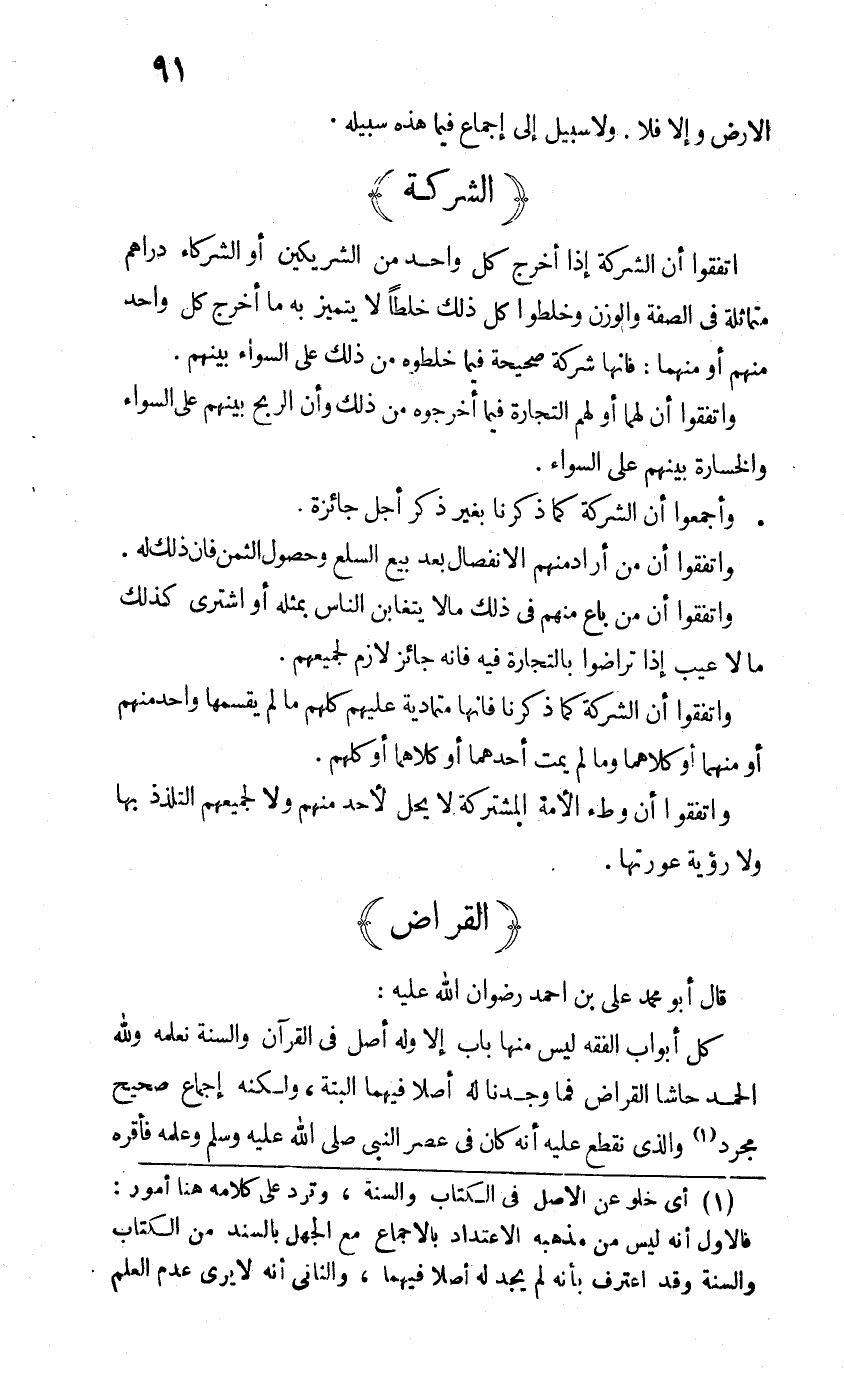 ٩١
الارض وإلا فلا . ولا سبيل إلى إجماع فيما هذه سبيله .
﴿ الشركة ﴾
اتفقوا أن الشركة إذا أخرج كل واحد من الشريكين أو الشركاء دراهم
متماثلة فى الصفة والوزن وخلطوا كل ذلك خلطاً لا يتميز به ما أخرج كل واحد
منهم أو منهما : فانها شركة صحيحة فيما خلطوه من ذلك على السواء بينهم .
واتفقوا أن لهما أو لهم التجارة فيما أخرجوه من ذلك وأن الربح بينهم على السواء
والخسارة بينهم على السواء .
. وأجمعوا أن الشركة كما ذكرنا بغير ذكر أجل جائزة .
واتفقوا أن من أراد منهم الانفصال بعد بيع السلع وحصول الثمن فان ذلك له .
واتفقوا أن من باع منهم فى ذلك مالا يتغابن الناس بمثله أو اشترى كذلك
ما لا عيب إذا تراضوا بالتجارة فيه فانه جائز لازم لجميعهم .
واتفقوا أن الشركة كما ذكرنا فانها متمادية عليهم كلهم ما لم يقسمها واحد منهم
أو منهما أو كلاهما وما لم يمت أحدهما أو كلاهما أو كلهم .
واتفقوا أن وطء الأمة المشتركة لا يحل لأحد منهم ولا لجميعهم التلذذ بها
ولا رؤية عورتها .
﴿ القراض ﴾
قال أبو محمد على بن احمد رضوان الله عليه :
كل أبواب الفقه ليس منها باب إلا وله أصل فى القرآن والسنة نعلمه ولله
الحمد حاشا القراض فما وجدنا له أصلا فيهما البتة ، ولكنه إجماع صحيح
مجرد (١) والذى نقطع عليه أنه كان فى عصر النبى صلى الله عليه وسلم وعلمه فأقره
(١) أى خلو عن الاصل فى الكتاب والسنة ، وترد على كلامه هنا أمور :
فالاول أنه ليس من مذهبه الاعتداد بالاجماع مع الجهل بالسند من الكتاب
والسنة وقد اعترف بأنه لم يجد له أصلا فيهما ، والثانى أنه لا يرى عدم العلم